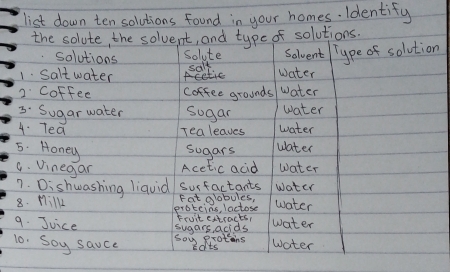 list down ten solutions found in your homes. Identify
the solute, the solvent, and type of solutions.
Solutions Solute Solvent Type of solution
1. Salt water salt Acetic Water
2. Coffee Coffee grounds Water
3. Sugar water Sugar Water
4. Tea Tea leaves Water
5. Honey Sugars Water
6. Vinegar Acetic acid Water
7. Dishwashing liquid Surfactants Water
8. Milk Fat globules, proteins, lactose Water
9. Juice Fruit extracts, sugars, acids Water
10. Soy sauce Soy proteins Water